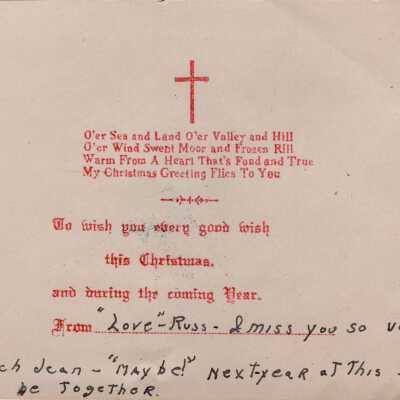 O'er Sea and Land O'er Valley and Hill
O'er Wind Swept Moor and Frozen Rill
Warm From A Heart That's Fond and True
My Christmas Greeting Flies To You
To wish you every good wish
this Christmas.
and during the coming Year.
From "Love"-Russ- I miss you so
ch Jean - "Maybe!" Next year at This
be Together.